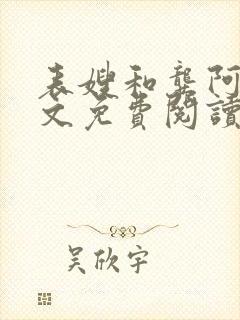 表嫂和龔阿
文免費閱讀
吴欣宇